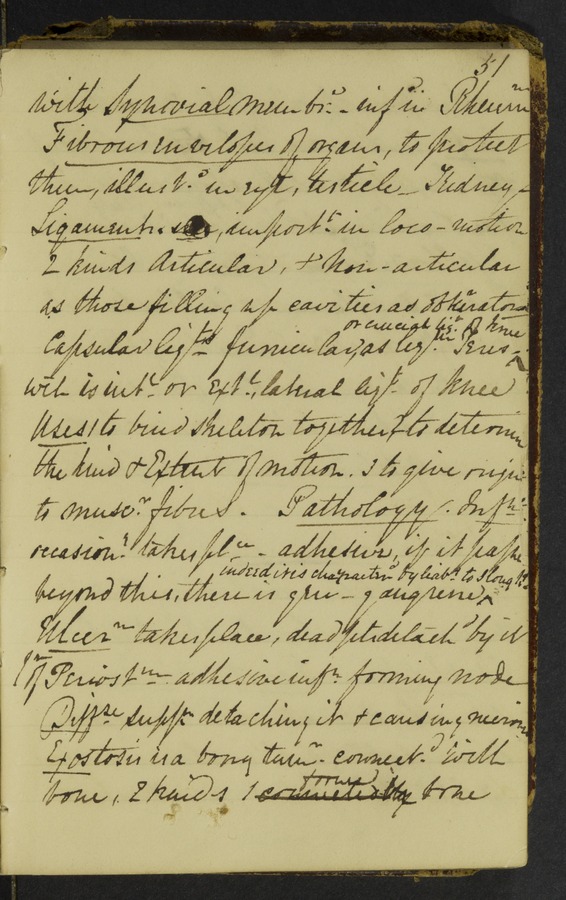 51
with Synovial membr. - infn in Rheum
Fibrous envelopes of organs, to protect
them, illustd in eye, testicle - Kidney -
Ligaments. , importt in loco-motion
2 kinds Articular, + Non-articular
as those filling up cavities as obturator
or crucial ligt of knee
Capsular ligts funicular, as ligm Teres ^
wch is intl or extl, lateral ligt of knee
Uses 1 to bind skeleton together, 2 to determin
the kind & Extent of motion. 3 to give origin
to muscr fibres. Pathology. Infn
occasiony takes place - adhesive, if it passes
indeed it is characterd by liaby to slough
beyond this, there is gen - gangrene, ^
Ulcern takes place, dead pt detachd by it
In of Periostm - adhesive infn forming node
Diffse suppn detaching it & causing necros
Exostosis is a bony tumr connectd with
formed
bone, 2 kinds 1 bone